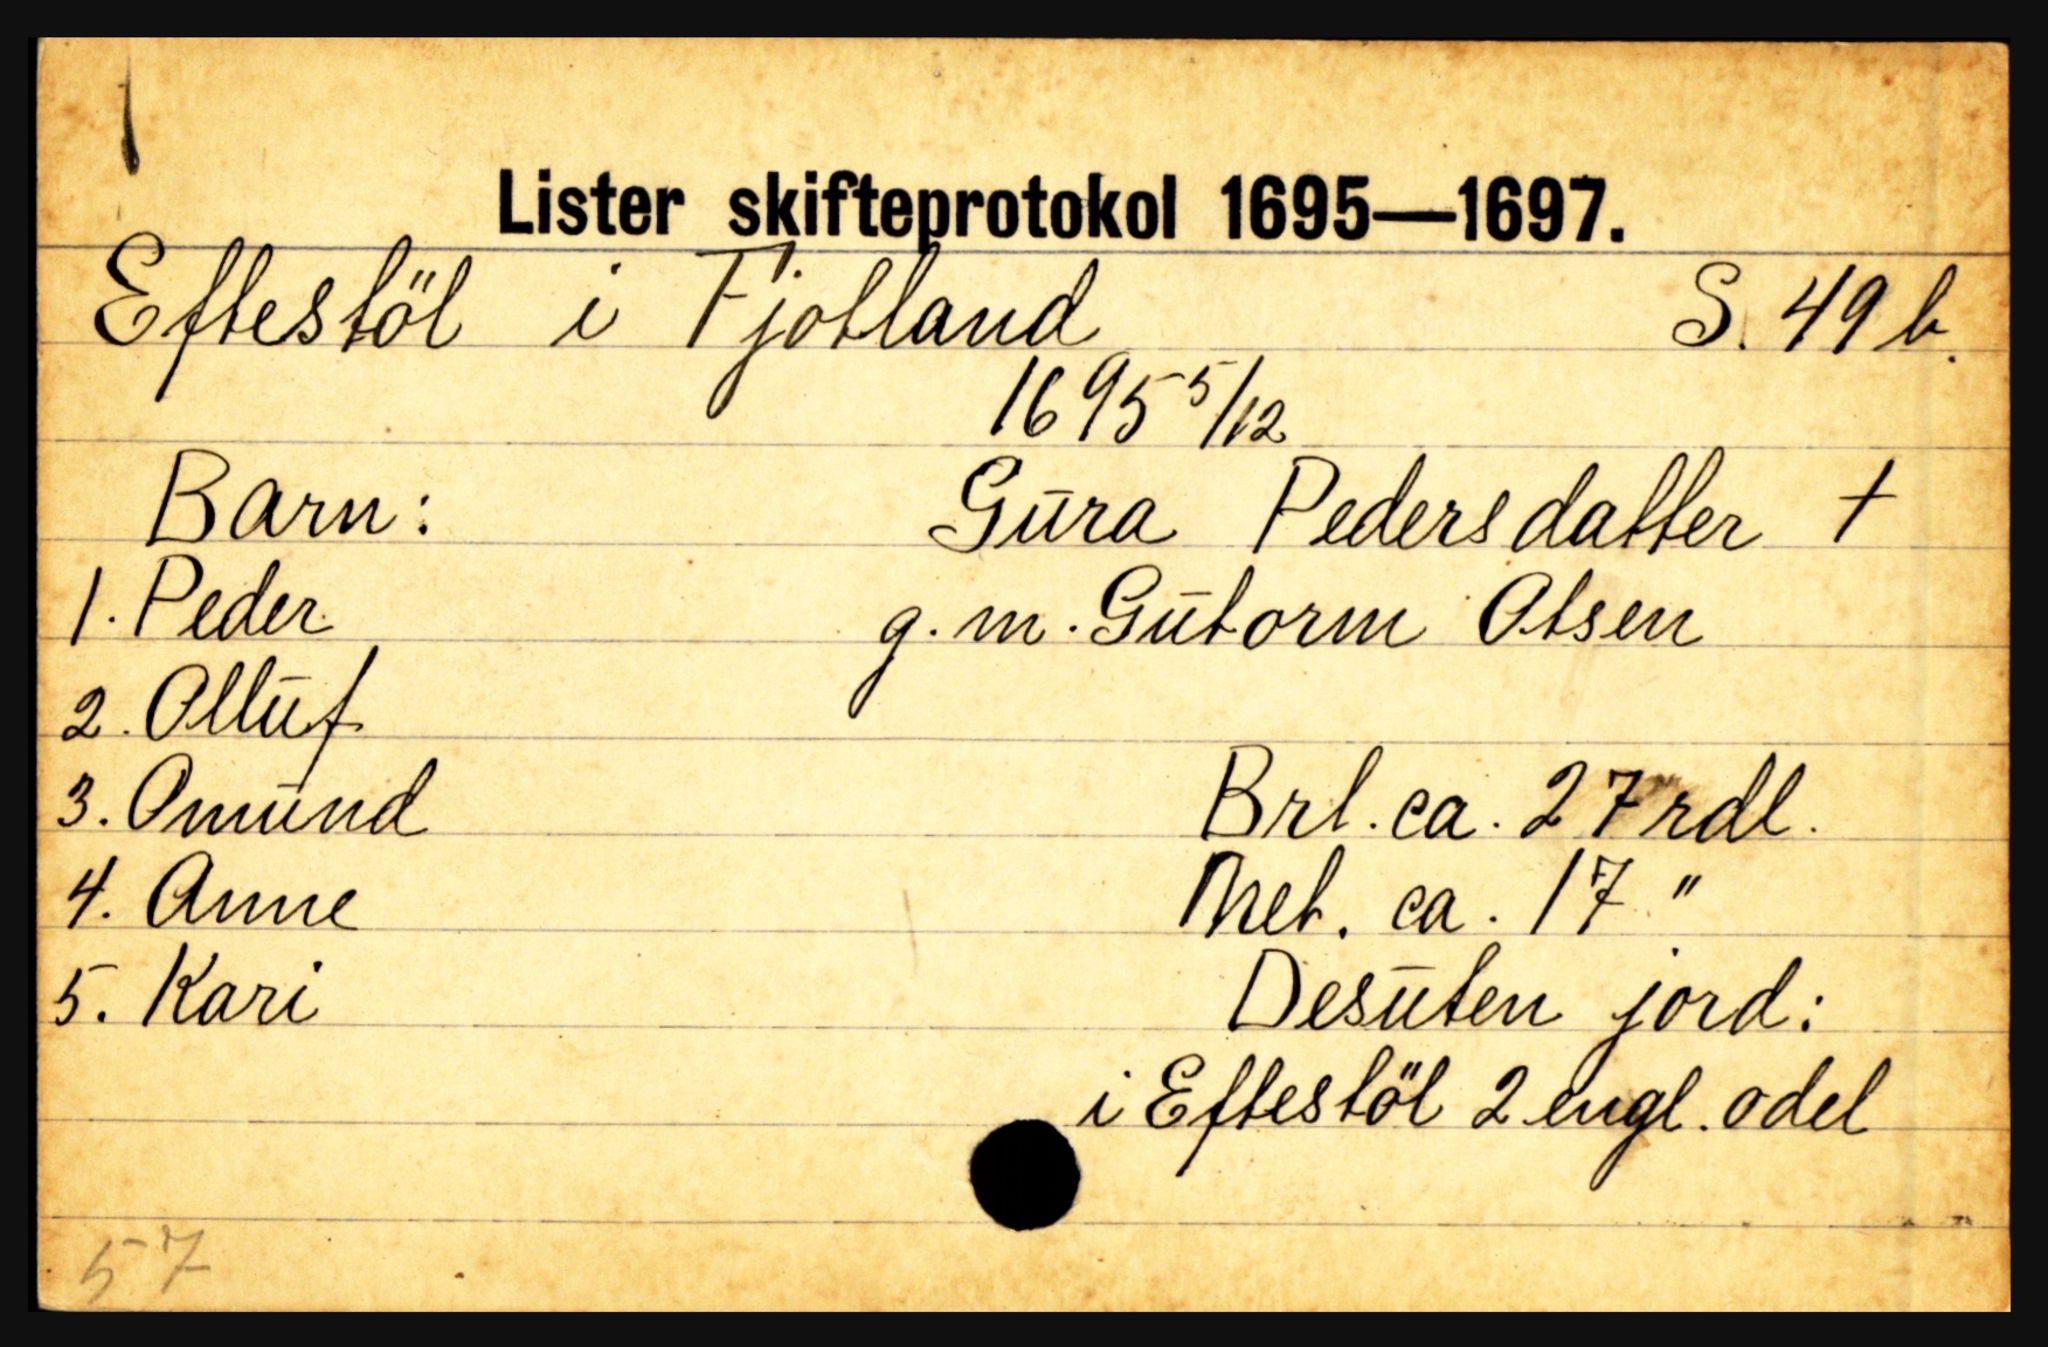 Lister skifteprotokol 1695—1697.
Eftestöl i Fjotland S. 49 b.
1695 5/12
Barn: Gūra Pedersdatter †
1. Peder g. m. Gūtorm Olsen
2. Ollūf
3. Omūnd Brl. ca. 27 rdl.
4. Anne Net. ca. 17 "
5. Kari Desūten jord:
i Eftestöl 2 engl. odel
57